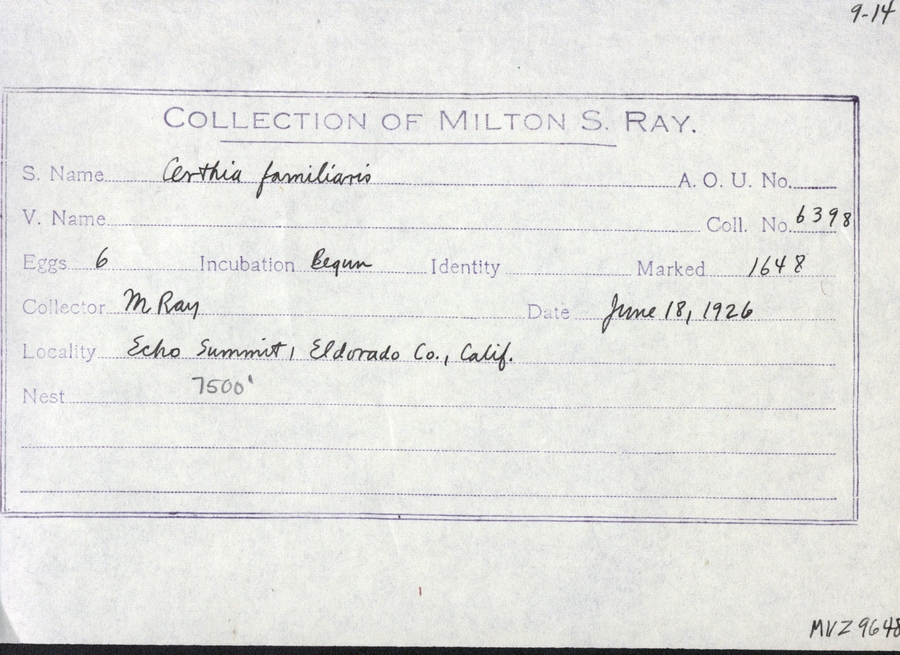 9-14
COLLECTION OF MILTON S. RAY.
S. Name Certhia familiaris A. O. U. No.
V. Name Coll. No. 6398
Eggs 6 Incubation Begun Identity Marked 1648
Collector M Ray Date June 18, 1926
Locality Echo Summit, Eldorado Co., Calif.
7500'
Nest
MVZ 9648